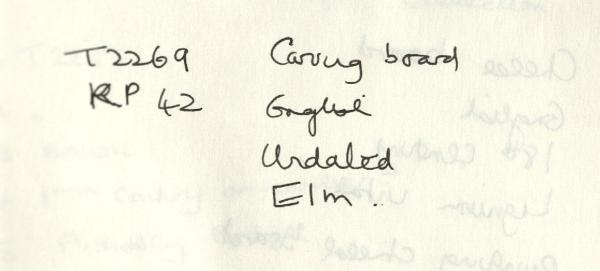 T2269 Carving board
RP 42 English
Undated
Elm.